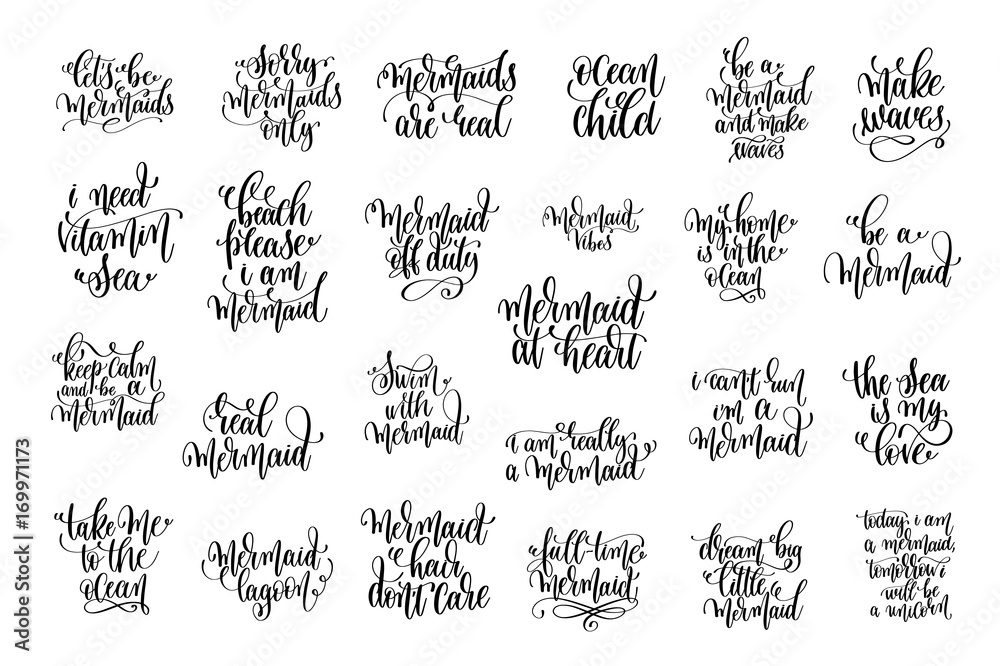 let's be
mermaids
sorry
mermaids
only
mermaids
are real
ocean
child
be a
mermaid
and make
waves
make
waves
i need
vitamin
sea
beach
please
i am
mermaid
mermaid
off duty
mermaid
vibes
my home
is in the
ocean
be a
mermaid
mermaid
at heart
keep calm
and be a
mermaid
real
mermaid
swim
with
mermaid
i am really
a mermaid
i can't run
i'm a
mermaid
the sea
is my
love
take me
to the
ocean
mermaid
lagoon
mermaid
hair
don't care
full-time
mermaid
dream big
little
mermaid
today i am
a mermaid,
tomorrow i
will be
a unicorn
Adobe Stock | #169971173